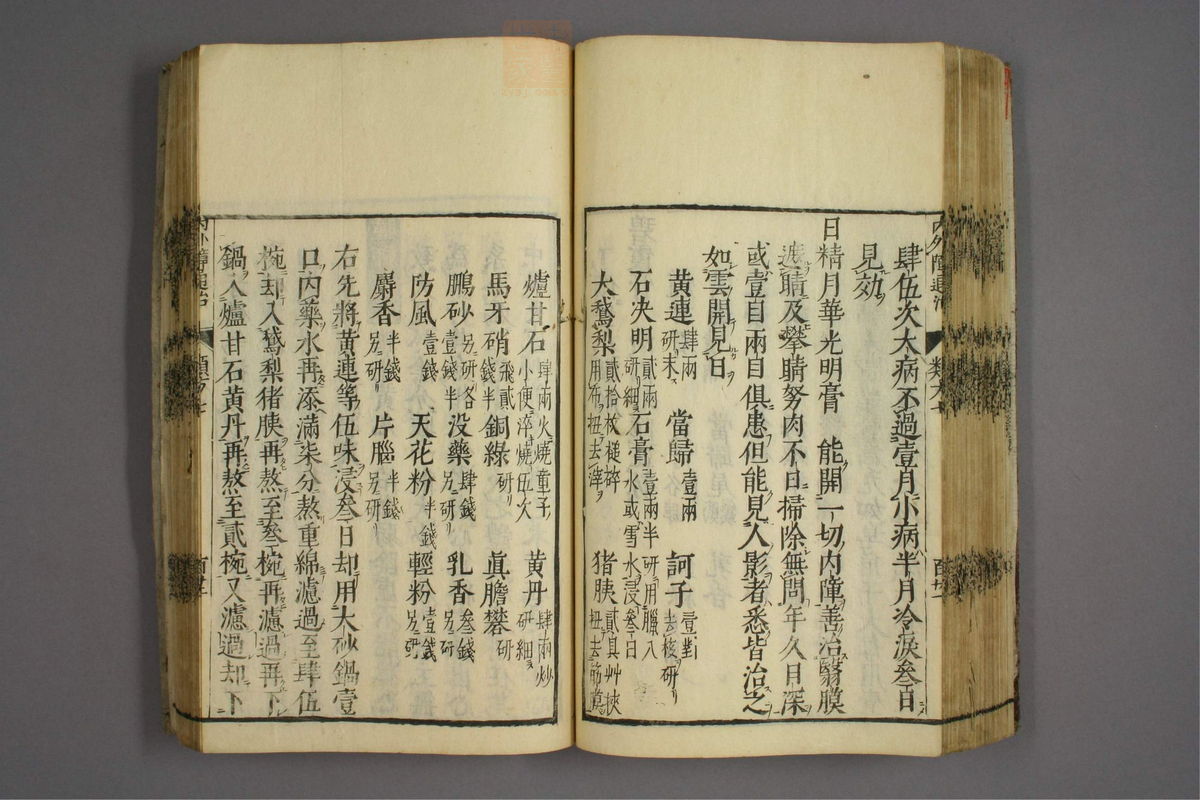 肆伍次大病不過壹月小病半月冷淚叁百
見効
日精月華光明膏　能開一切內障善治翳膜
遮睛及攀睛努肉不日掃除無問年久日深
或壹目兩目俱患但能見人影者悉皆治之
如雲開見日
黃連肆兩研末　當歸壹兩　訶子壹對去核研
石决明貳兩研細　石膏壹兩半研用臘八水或雪水浸叁日
大鵝梨貳拾枚槌碎用布扭去滓　猪胰貳具艸挾扭去筋莫
爐甘石肆兩火燒童子小便淬燒伍次　黃丹肆兩炒研細
馬牙硝飛貳錢半　銅綠研　眞膽礬研
鵬砂另研各壹錢半　没藥肆錢另研　乳香叁錢另研
防風壹錢　天花粉半錢　輕粉壹錢另研
麝香半錢另研　片腦半錢另研
右先將黃連等伍味浸叁日却用大砂鍋壹
口內藥水再添滿柒分熬重綿濾過至肆伍
椀却入鵝梨猪胰再熬至叁椀再濾過再下
鍋入爐甘石黃丹再熬至貳椀又濾過却下